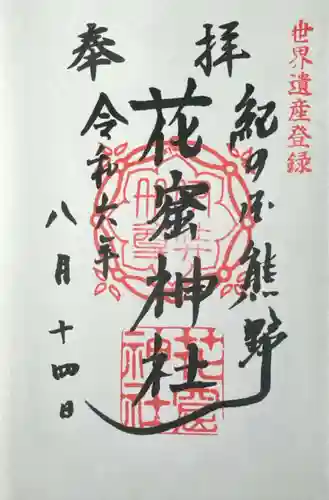 世界遺産登録
奉拝
紀の国熊野
花窟神社
令和六年
八月十四日
花窟神社